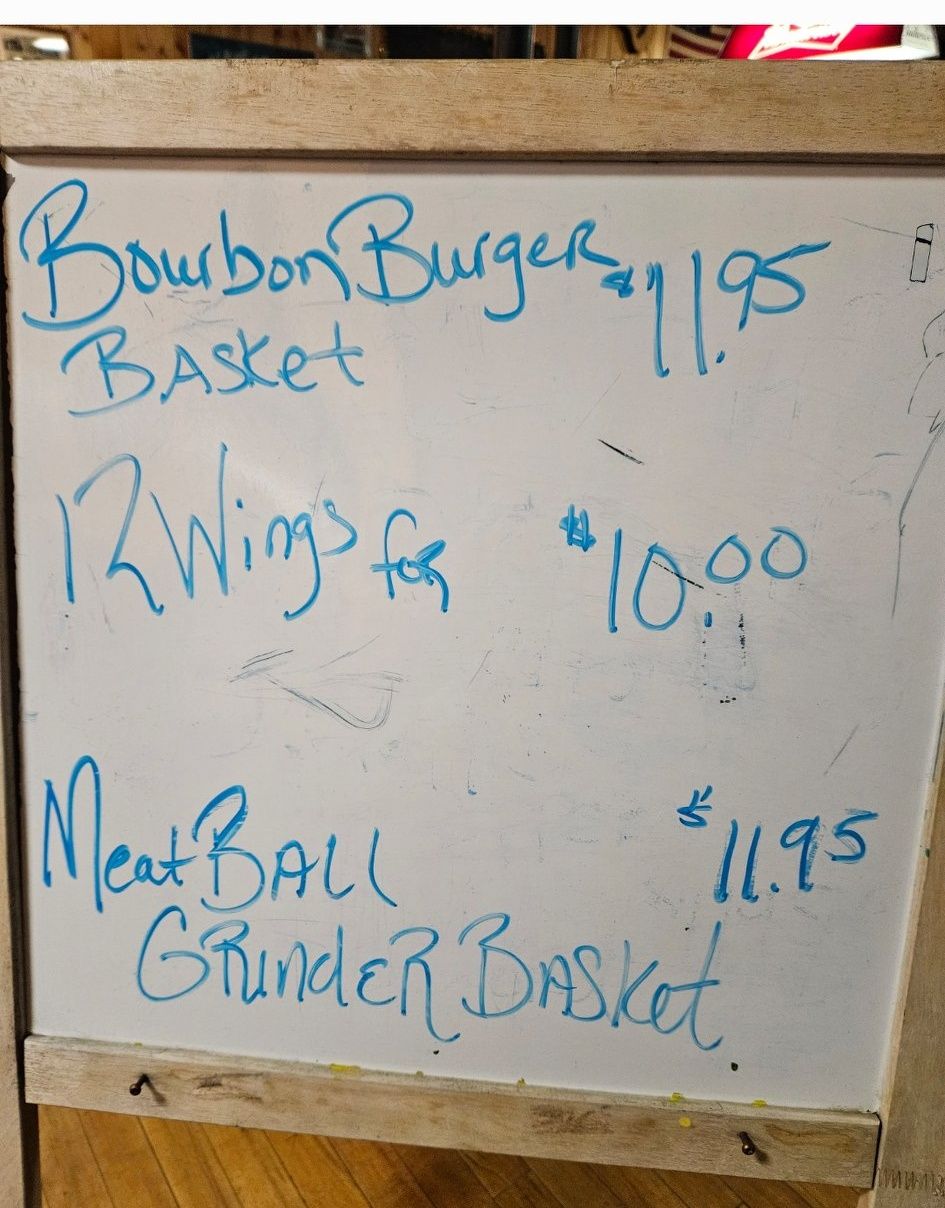 Bourbon Burger $11.95
Basket
12 Wings for $10.00
Meat Ball $11.95
Grinder Basket